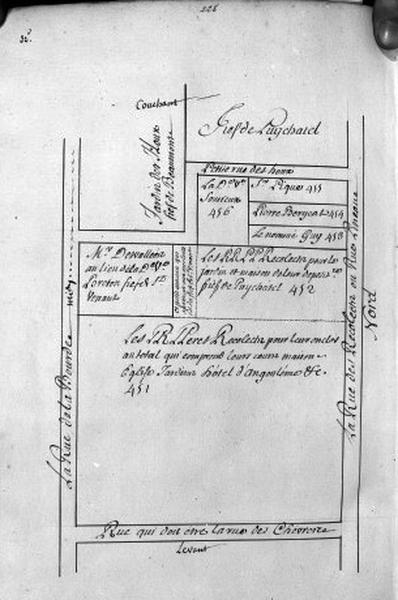 226
Couchant
fief de Puychatel
Jardin des
fief de Beaumont
Petite rue des
La D.e V.e
456
S.r Piques 455
Pierre Bergeat 454
Le nommé Guy 453
M.r Dewallen
au lieu de la D.e V.e
fief de S.t
Venant
Les RR PP Recolects pour leur
jardin et maison de leur depost
fief de Puychatel 452
Les RR Peres Recolects pour leur enclos
au total qui comprend leurs cours maison
Eglise Jardins hôtel d'Angoulême &c.
451
La Rue de la Bourde
La Rue des Recolects ou Rue
Nord
Rue qui doit être la rue des Chevrets
Levant